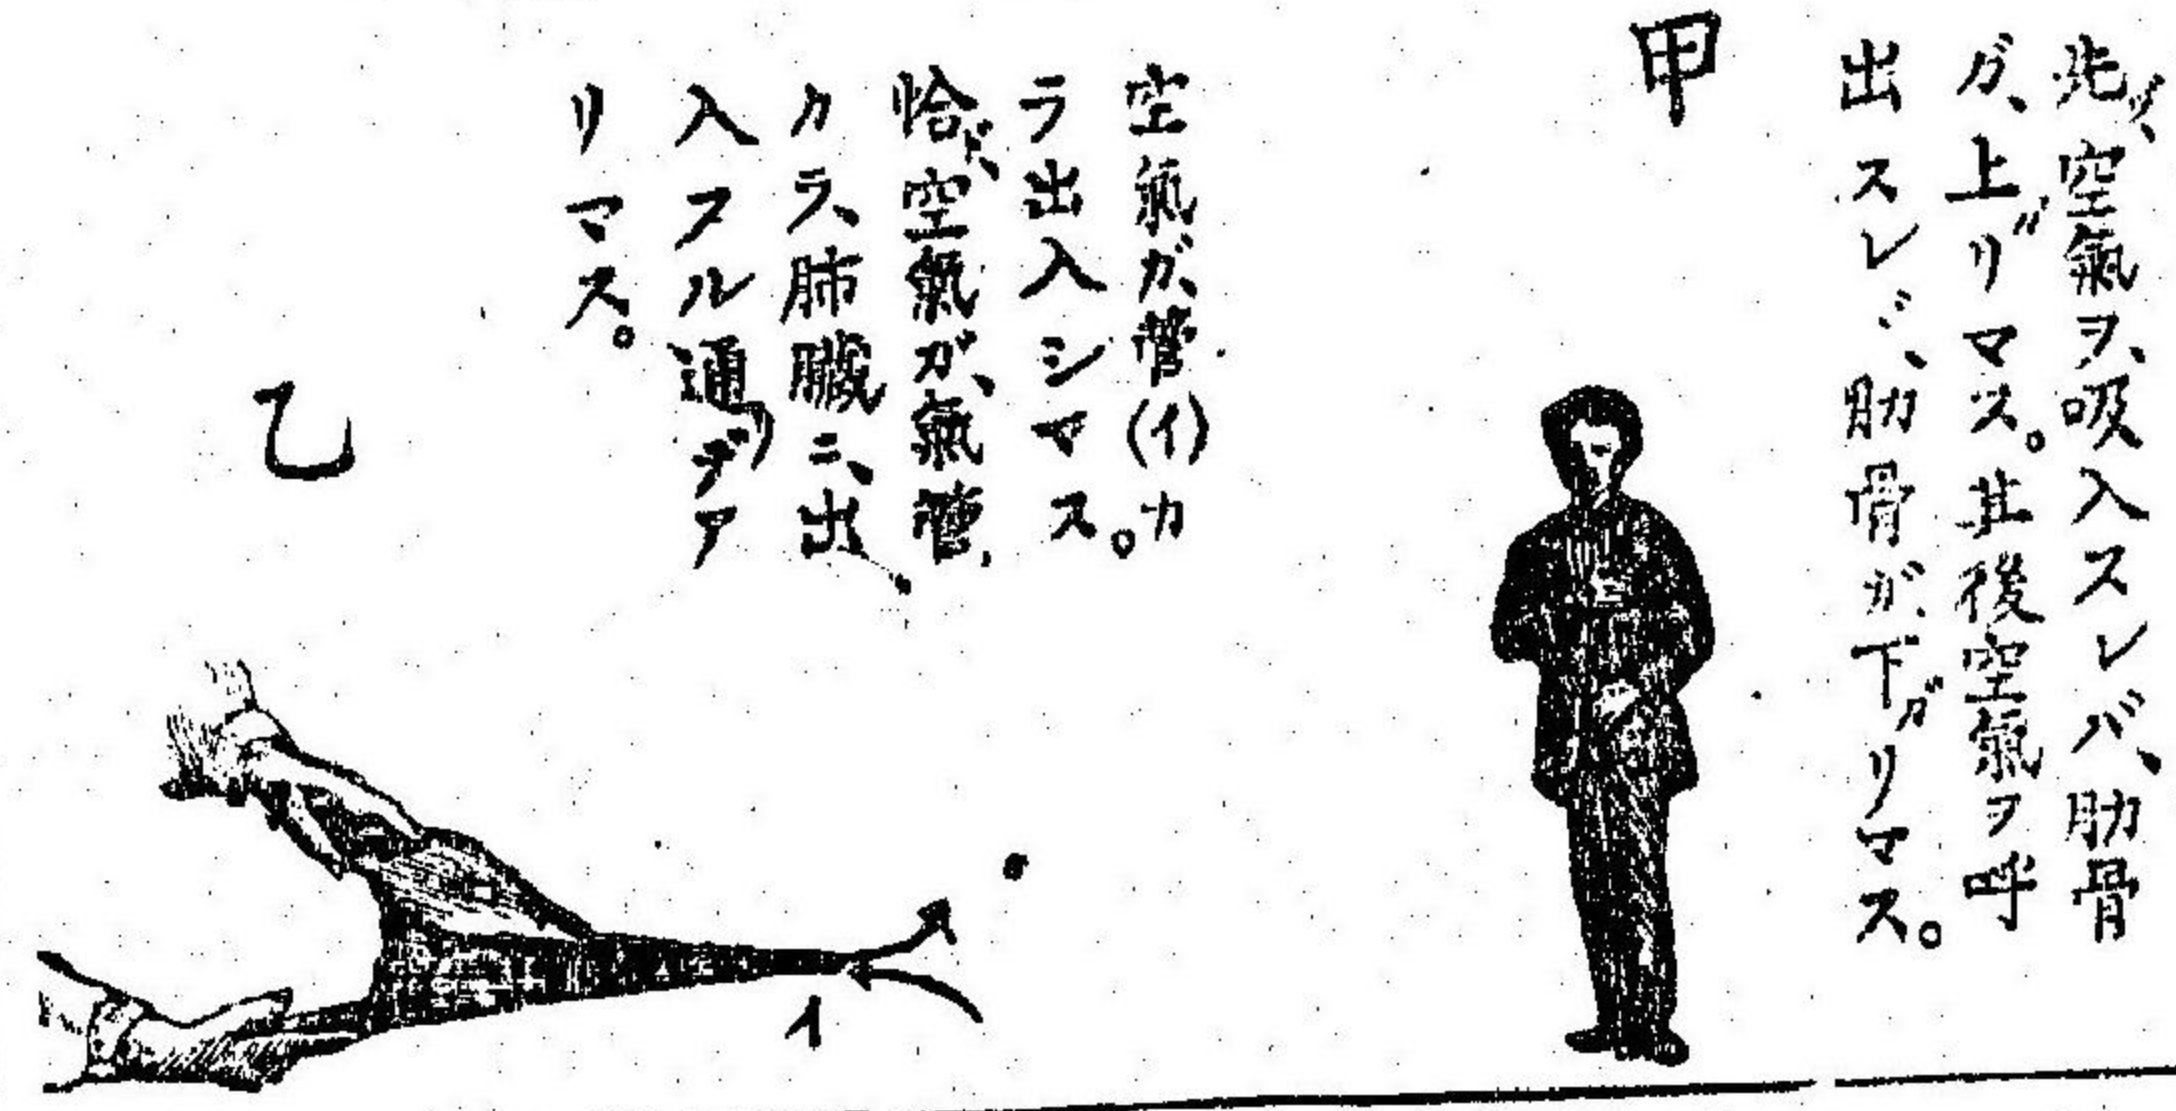 此ノ、空氣ヲ、吸入スレバ、肋骨
ガ、上ガリマス。其後空氣ヲ呼
出スレバ、肋骨ガ、下ガリマス。
甲
空氣ガ、管(イ)カ
ラ出入シマス。
恰ド、空氣ガ、氣管
カラ、肺臟ニ、出
入スル通リデア
リマス。
乙
イ